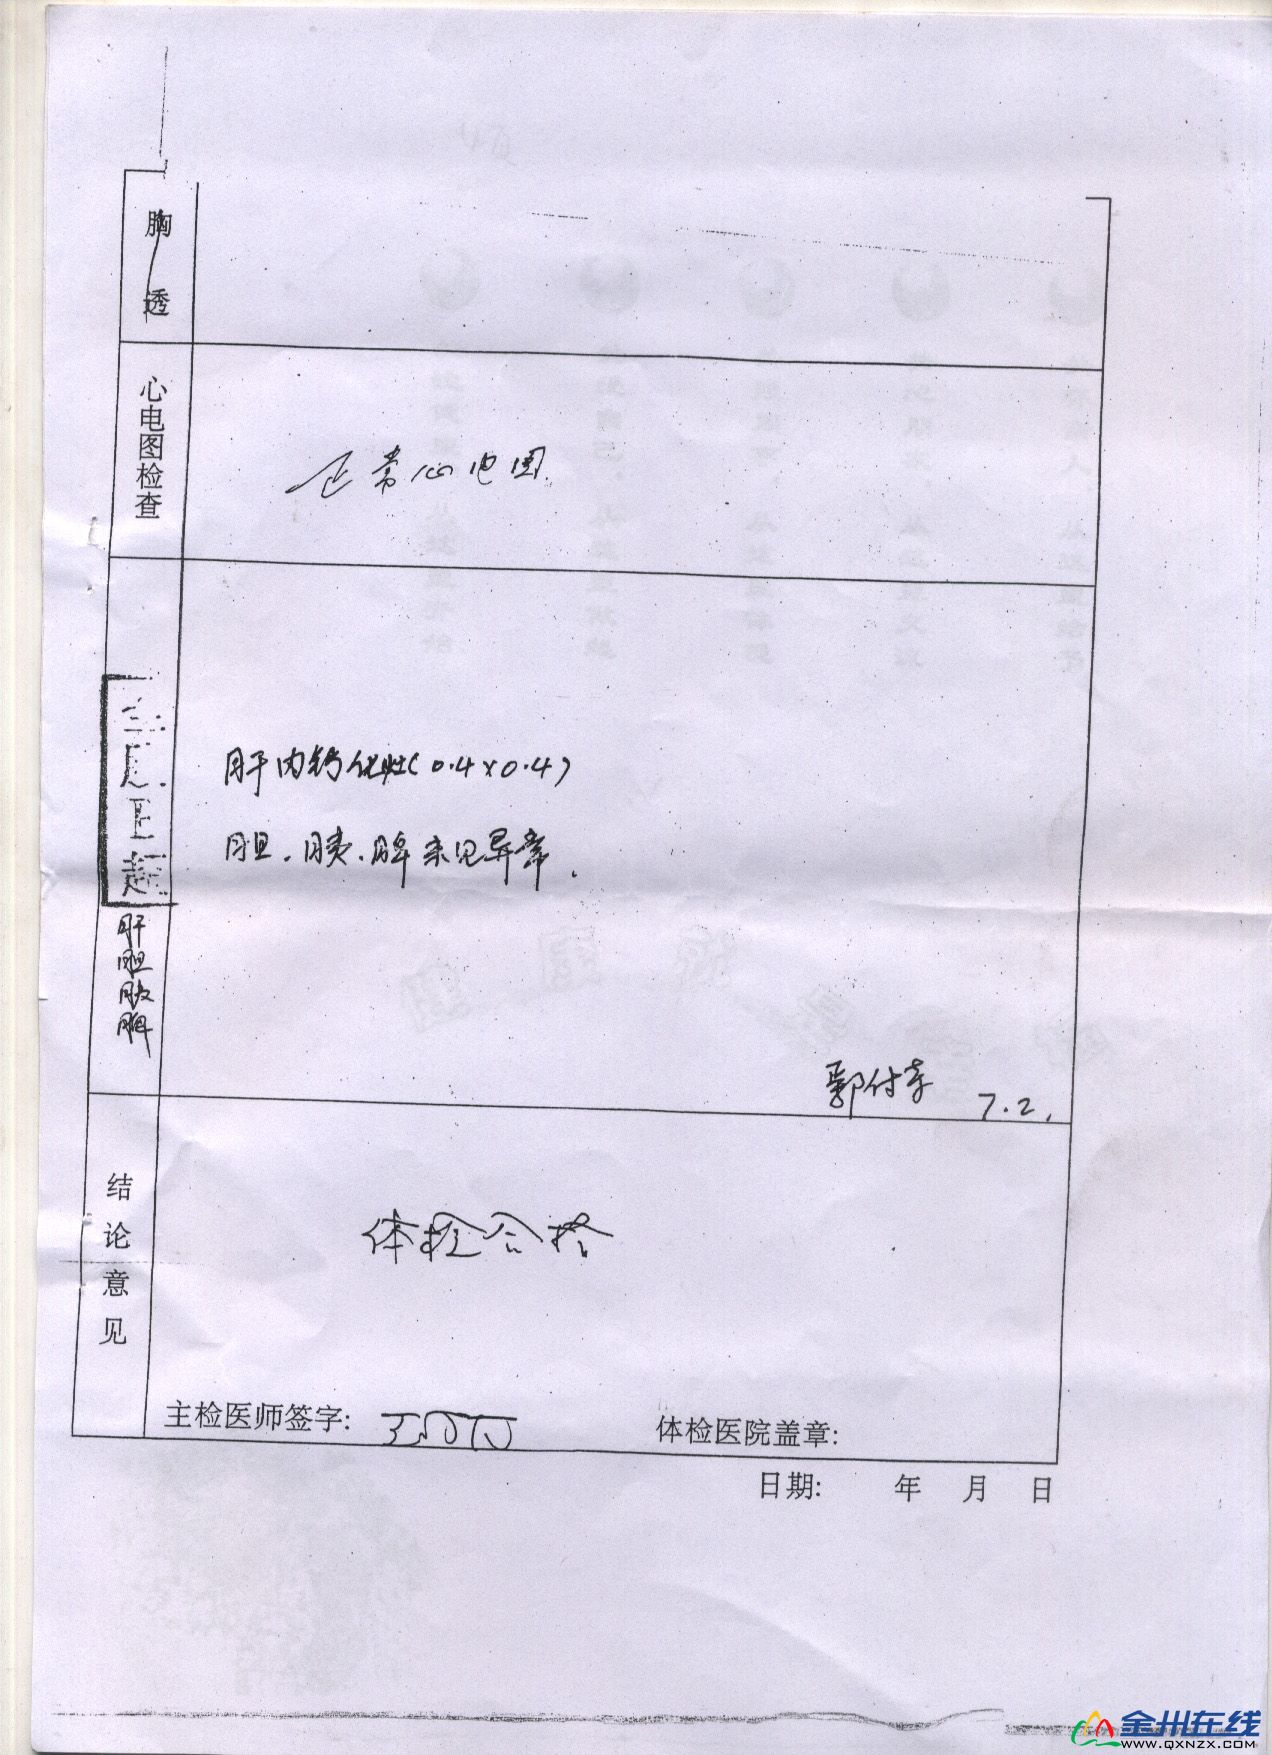 胸透
心电图检查
正常心电图.
肝内钙化灶(0.4×0.4)
胆.胰.脾未见异常.
肝胆胰脾
7.2.
结论意见
体检合格
主检医师签字:
体检医院盖章:
日期: 年 月 日
金州在线
WWW.QXNZX.COM